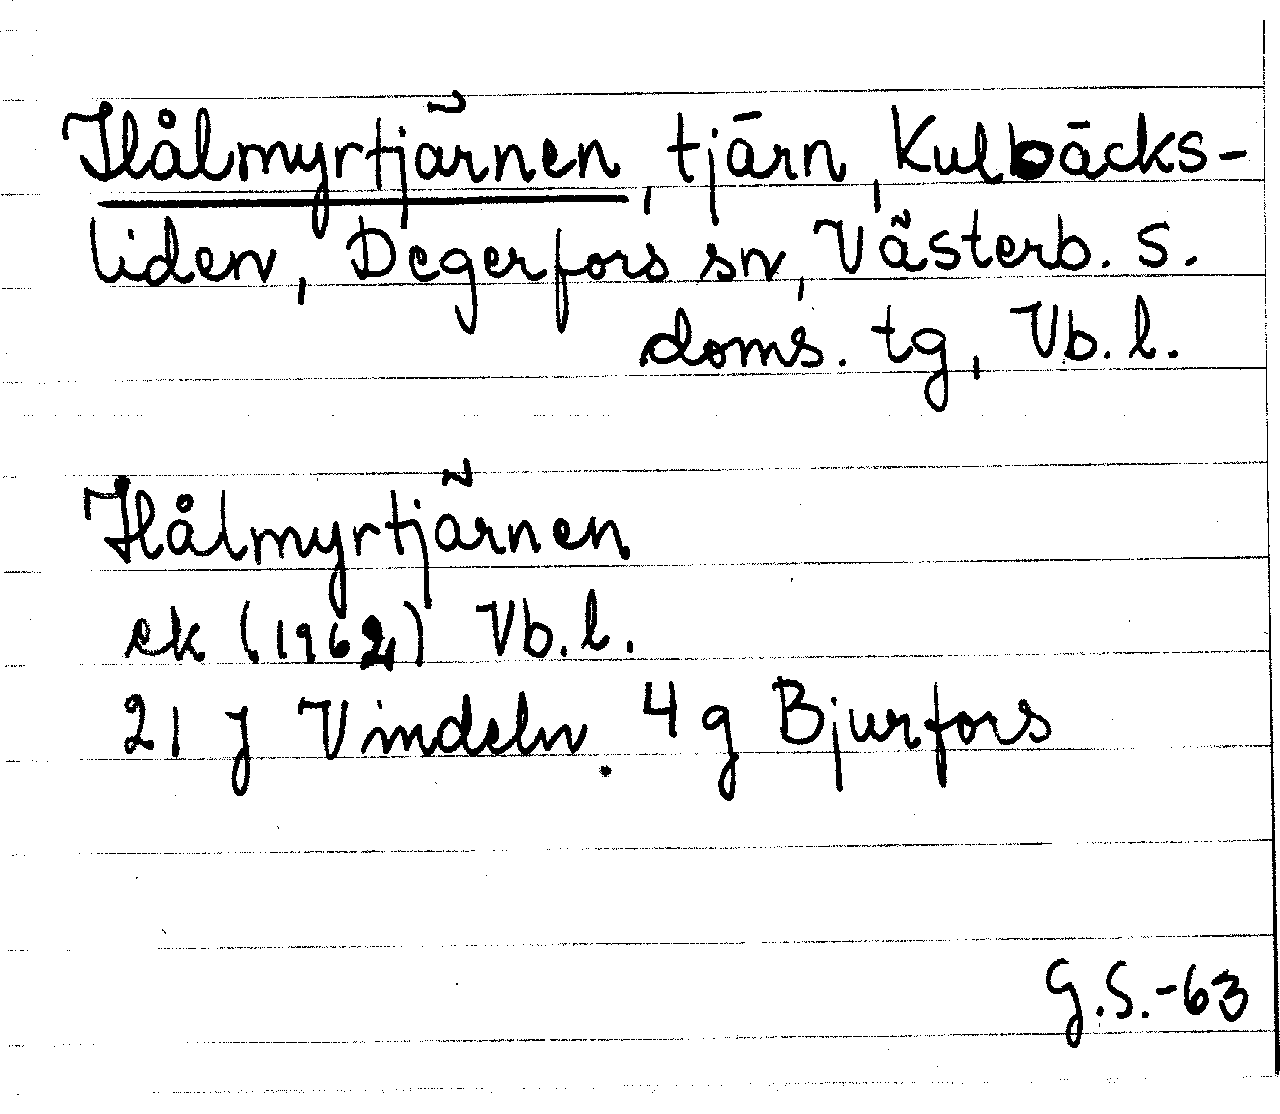 Hålmyrtjärnen, tjärn, Kulbäcks-
liden, Degerfors sn, Västerb. s.
doms. tg, Vb. l.
Hålmyrtjärnen
ek (1962) Vb. l.
21 J Vindeln. 4 g Bjurfors
G.S.-63